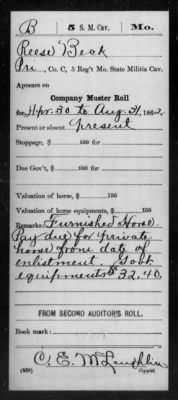 B 5 S. M. Cav. Mo.
Reese Beck
Pri., Co. C, 5 Reg't Mo. State Militia Cav.
Appears on
Company Muster Roll
for Apr. 30 to Aug. 31, 1862.
Present or absent present
Stoppage, $ 100 for
Due Gov't, $ 100 for
Valuation of horse, $ 100
Valuation of horse equipments, $ 100
Remarks: Furnished Horse.
Pay due for private
horse from date of
enlistment. Govt
equipments $32.40
FROM SECOND AUDITOR'S ROLL.
Book mark:
C. E. McLaughlin
(858) Copyist.